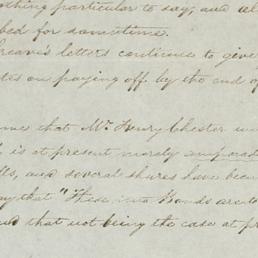 nothing particular to say, and
bed for sometime.
Greave's letters continue to give
on paying off by the end of
me that Mr. Henry Chester
is at present merely
and several shares have been
that "These two Bonds are
that not being the case at